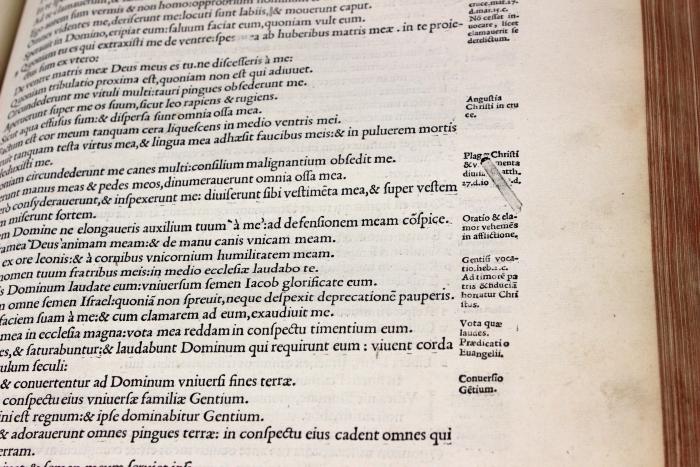 Ego autem sum vermis & non homo: opprobrium hominum
Omnes videntes me, deriserunt me: locuti sunt labiis, & mouerunt caput.
Sperauit in Domino, eripiat eum: saluum faciat eum, quoniam vult eum.
Quoniam tu es qui extraxisti me de ventre: spes ab huberibus matris meæ. in te proie-
sum ex vtero:
De ventre matris meæ Deus meus es tu. ne discesseris à me:
Quoniam tribulatio proxima est, quoniam non est qui adiuuet.
Circundederunt me vituli multi: tauri pingues obsederunt me.
Aperuerunt super me os suum, sicut leo rapiens & rugiens.
Sicut aqua effusus sum: & dispersa sunt omnia ossa mea.
factum est cor meum tanquam cera liquescens in medio ventris mei.
tanquam testa virtus mea, & lingua mea adhæsit faucibus meis: & in puluerem mortis
deduxisti me.
oniam circundederunt me canes multi: consilium malignantium obsedit me.
erunt manus meas & pedes meos, dinumerauerunt omnia ossa mea.
rò consyderauerunt, & inspexerunt me: diuiserunt sibi vestimẽta mea, & super vestem
miserunt sortem.
m Domine ne elongaueris auxilium tuum à me: ad defensionem meam cõspice.
ramea Deus animam meam: & de manu canis vnicam meam.
ex ore leonis: & à cornibus vnicornium humilitatem meam.
nomen tuum fratribus meis: in medio ecclesiæ laudabo te.
is Dominum laudate eum: vniuersum semen Iacob glorificate eum.
m omne semen Israel: quoniã non spreuit, neque despexit deprecationẽ pauperis.
faciem suam à me: & cum clamarem ad eum, exaudiuit me.
mea in ecclesia magna: vota mea reddam in conspectu timentium eum.
es, & saturabuntur: & laudabunt Dominum qui requirunt eum: viuent corda
ulum seculi:
& conuertentur ad Dominum vniuersi fines terræ.
conspectu eius vniuersæ familiæ Gentium.
ini est regnum: & ipse dominabitur Gentium.
& adorauerunt omnes pingues terræ: in conspectu eius cadent omnes qui
erram.
cruce. mat. 27.
d. mar. 15. c.
Nõ cessat in-
uocare, licet
clamauerit se
derelictum.
Angustia
Christi in cru
ce.
Plag Christi
& v menta
diuis atth.
27. d. 10 d.
Oratio & cla-
mor vehemẽs
in afflictione.
Gentiũ voca-
tio. heb. 2. c.
Ad timorẽ pa
tris & inducũ
hortatur Chri
stus.
Vota quæ
laudes.
Prædicatio
Euangelii.
Conuersio
Gẽtium.